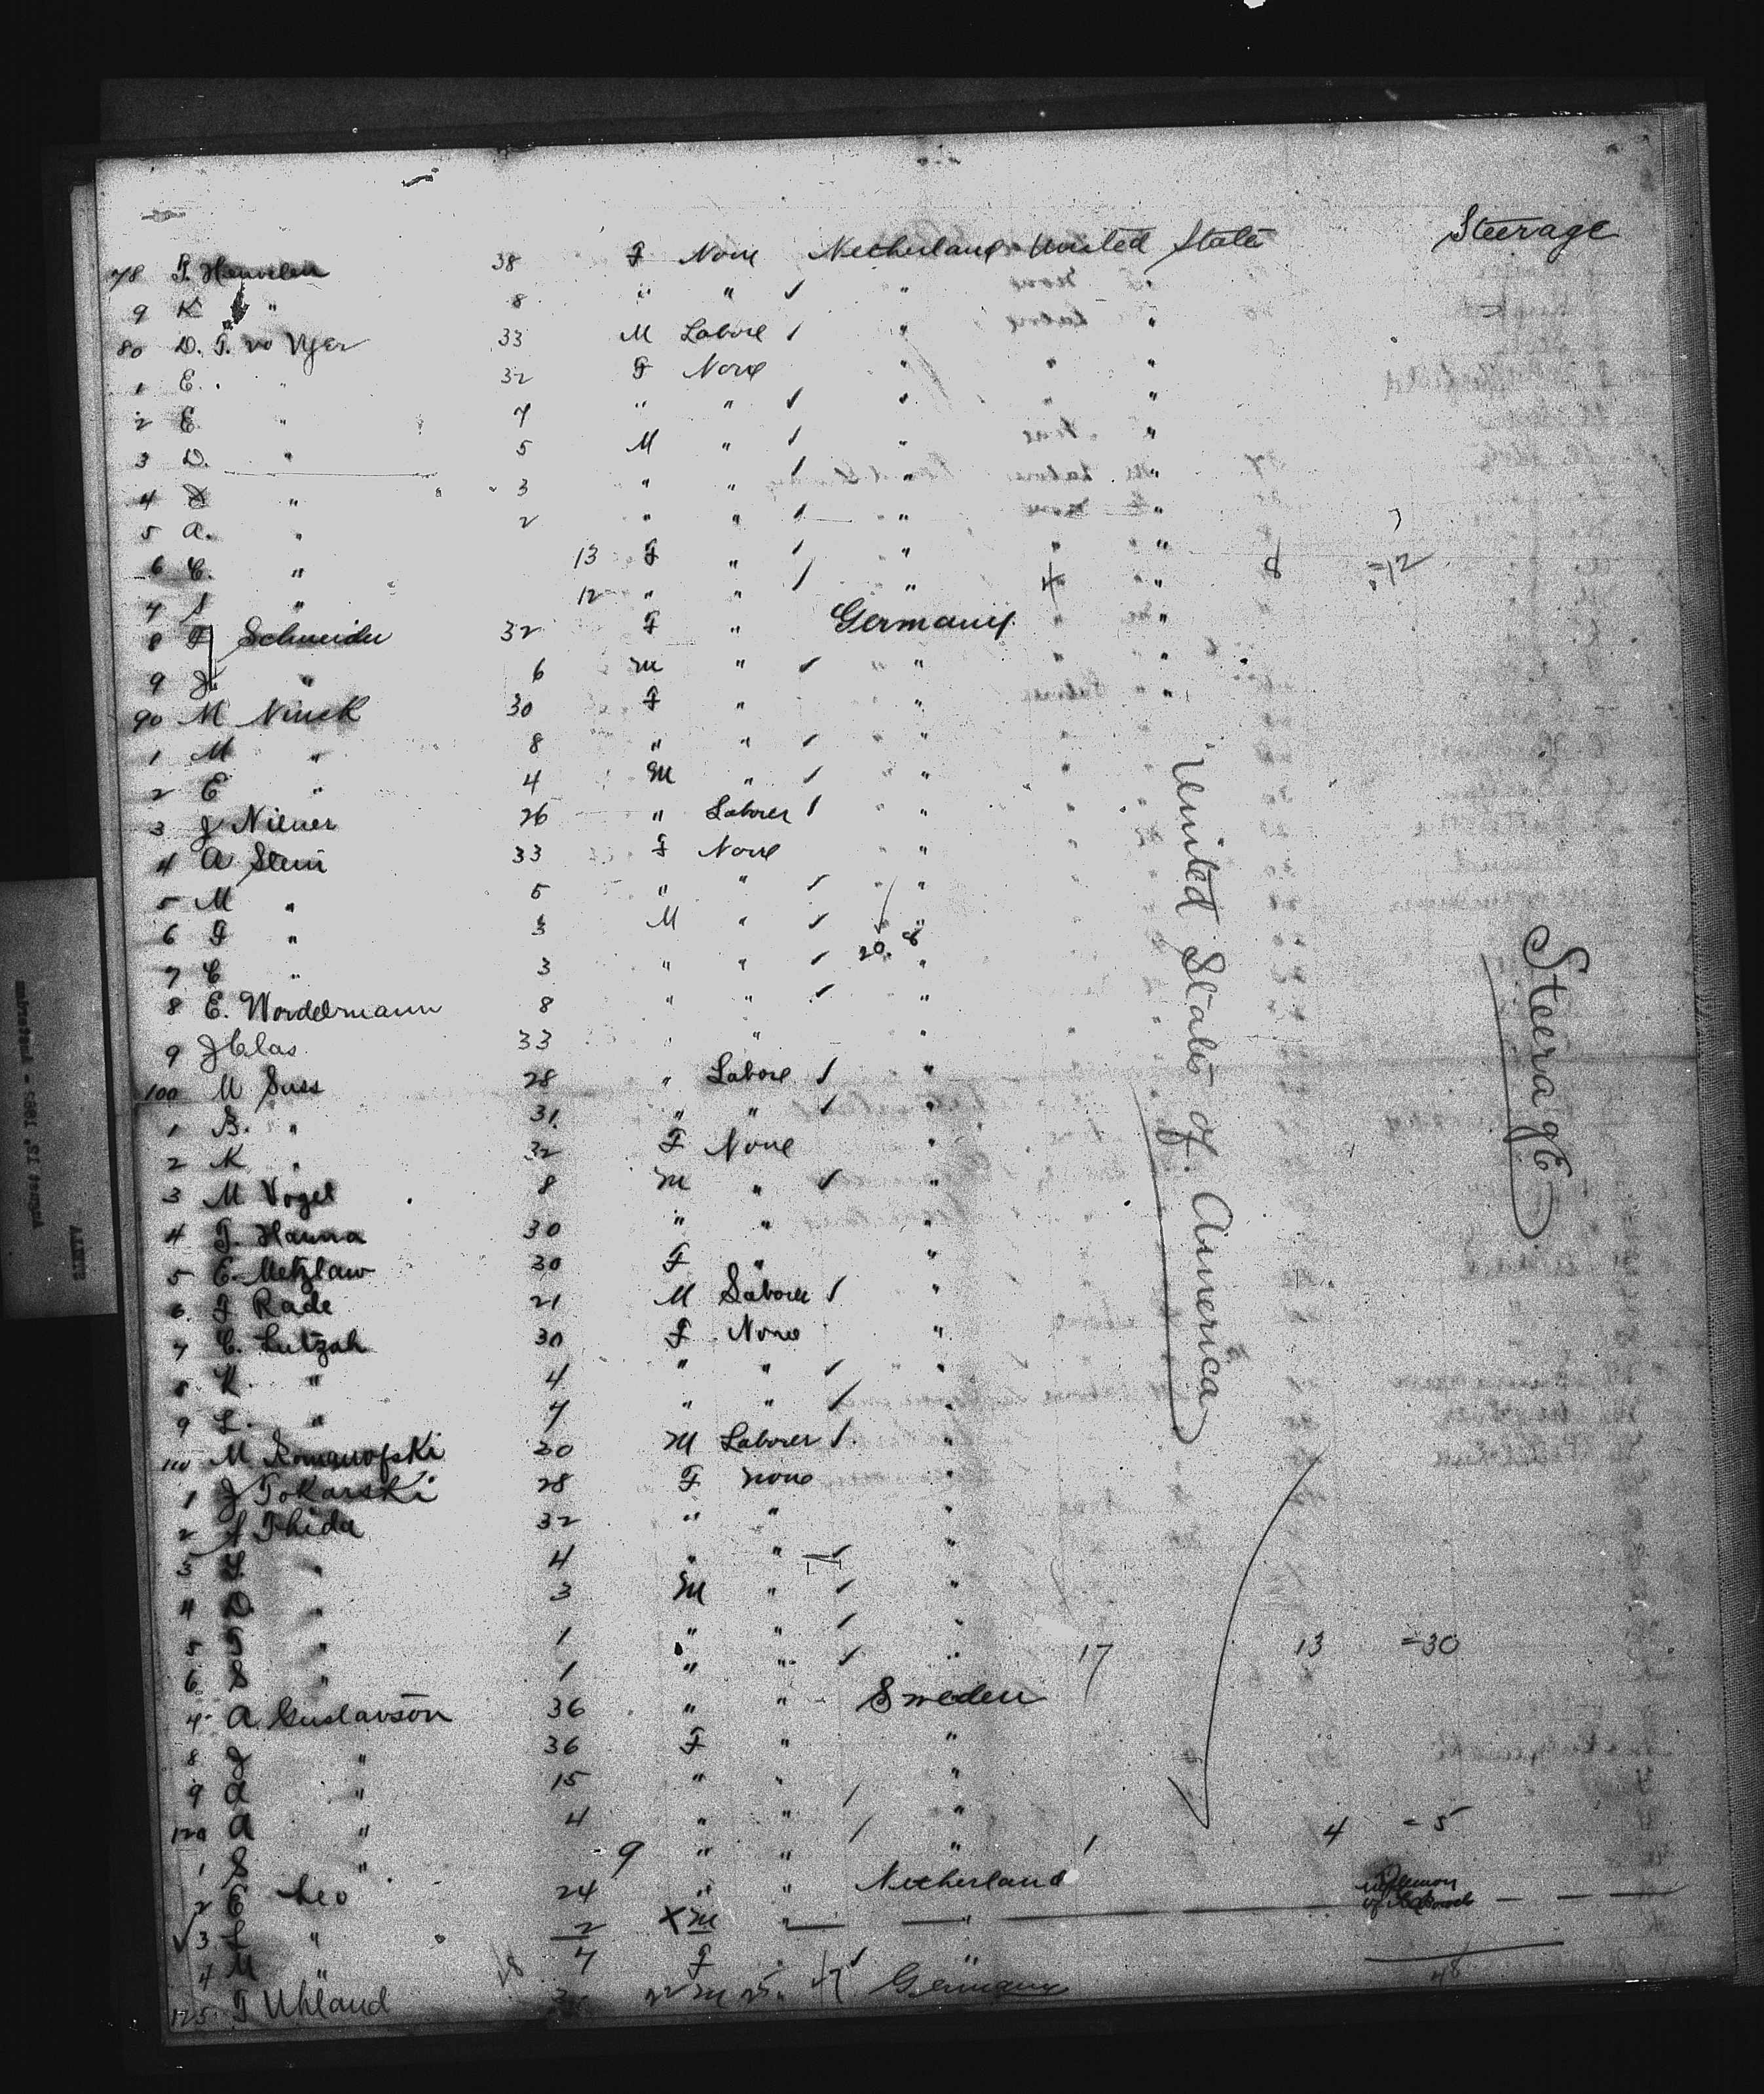 Steerage
78 T. Heuvelen 38 F None Netherland United States
9 K " 8 " " "
80 D. T. v Vyer 33 M Labore " "
1 E. " 32 F None " " "
2 E. " 7 " " " " "
3 D. " 5 M " " "
4 " 3 " " " "
5 A. " 2 " " " "
6 C. " 13 F " " " "
7 " 12 " " " 4 " 8 = 12
8 F Schneider 32 F " Germany "
9 J. " 6 M " " "
90 M Ninck 30 F " " "
1 M " 8 " " "
2 E " 4 M " "
3 J Niener 26 " Laborer "
4 A Stein 33 F None "
5 M " 5 " " "
6 F " 3 M " "
7 C " 3 " " 20. "
8 E. Wordelmann 8 " " "
9 J Clas 33 " " "
100 M Suss 28 " Labore "
1 B. " 31 " " "
2 K " 32 F None "
3 M Vogel 8 M " "
4 T. Hanna 30 " " "
5 E. Metzlaw 30 F " "
6 F Rade 21 M Laborer "
7 C. Lutzah 30 F None "
8 K. " 4 " " "
9 L. " 7 " " "
110 M Romanofski 20 M Laborer "
1 J Tokarski 28 F none "
2 A Thida 32 " " "
3 " 4 " " "
4 D. " 3 M " "
5 " 1 " " "
6 S " 1 " " " 17 13 = 30
7 A. Gustavson 36 " " Sweden
8 J " 36 F " "
9 A " 15 " " "
120 A " 4 " " "
1 S " 9 " " " 1 4 = 5
2 E Leo 24 " " Netherland
3 " 2 X M " "
4 M " 7 F " "
125 T Uhland M Germany
48
United States of America
Steerage